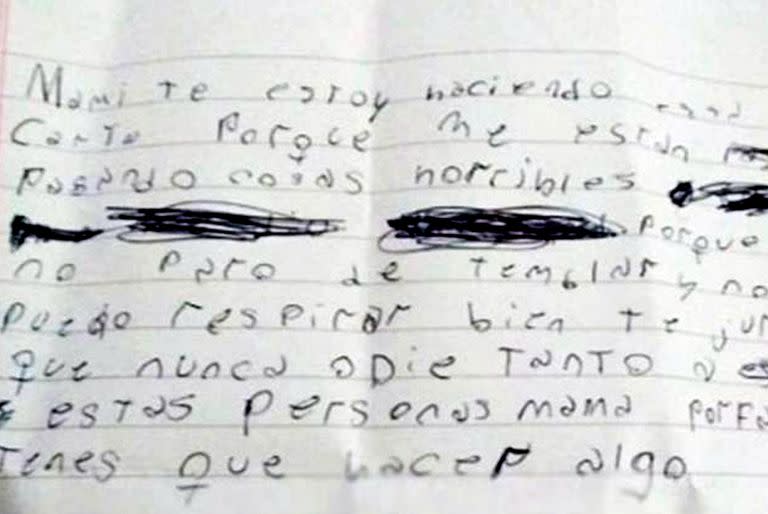 Mami te estoy haciendo
Carta Porque me están
Pasando cosas horribles
Porque
no Paro de temblar y no
Puedo respirar bien Te jur
que nunca odie TANTO a
estas Personas mama porfa
Tenes que hacer algo